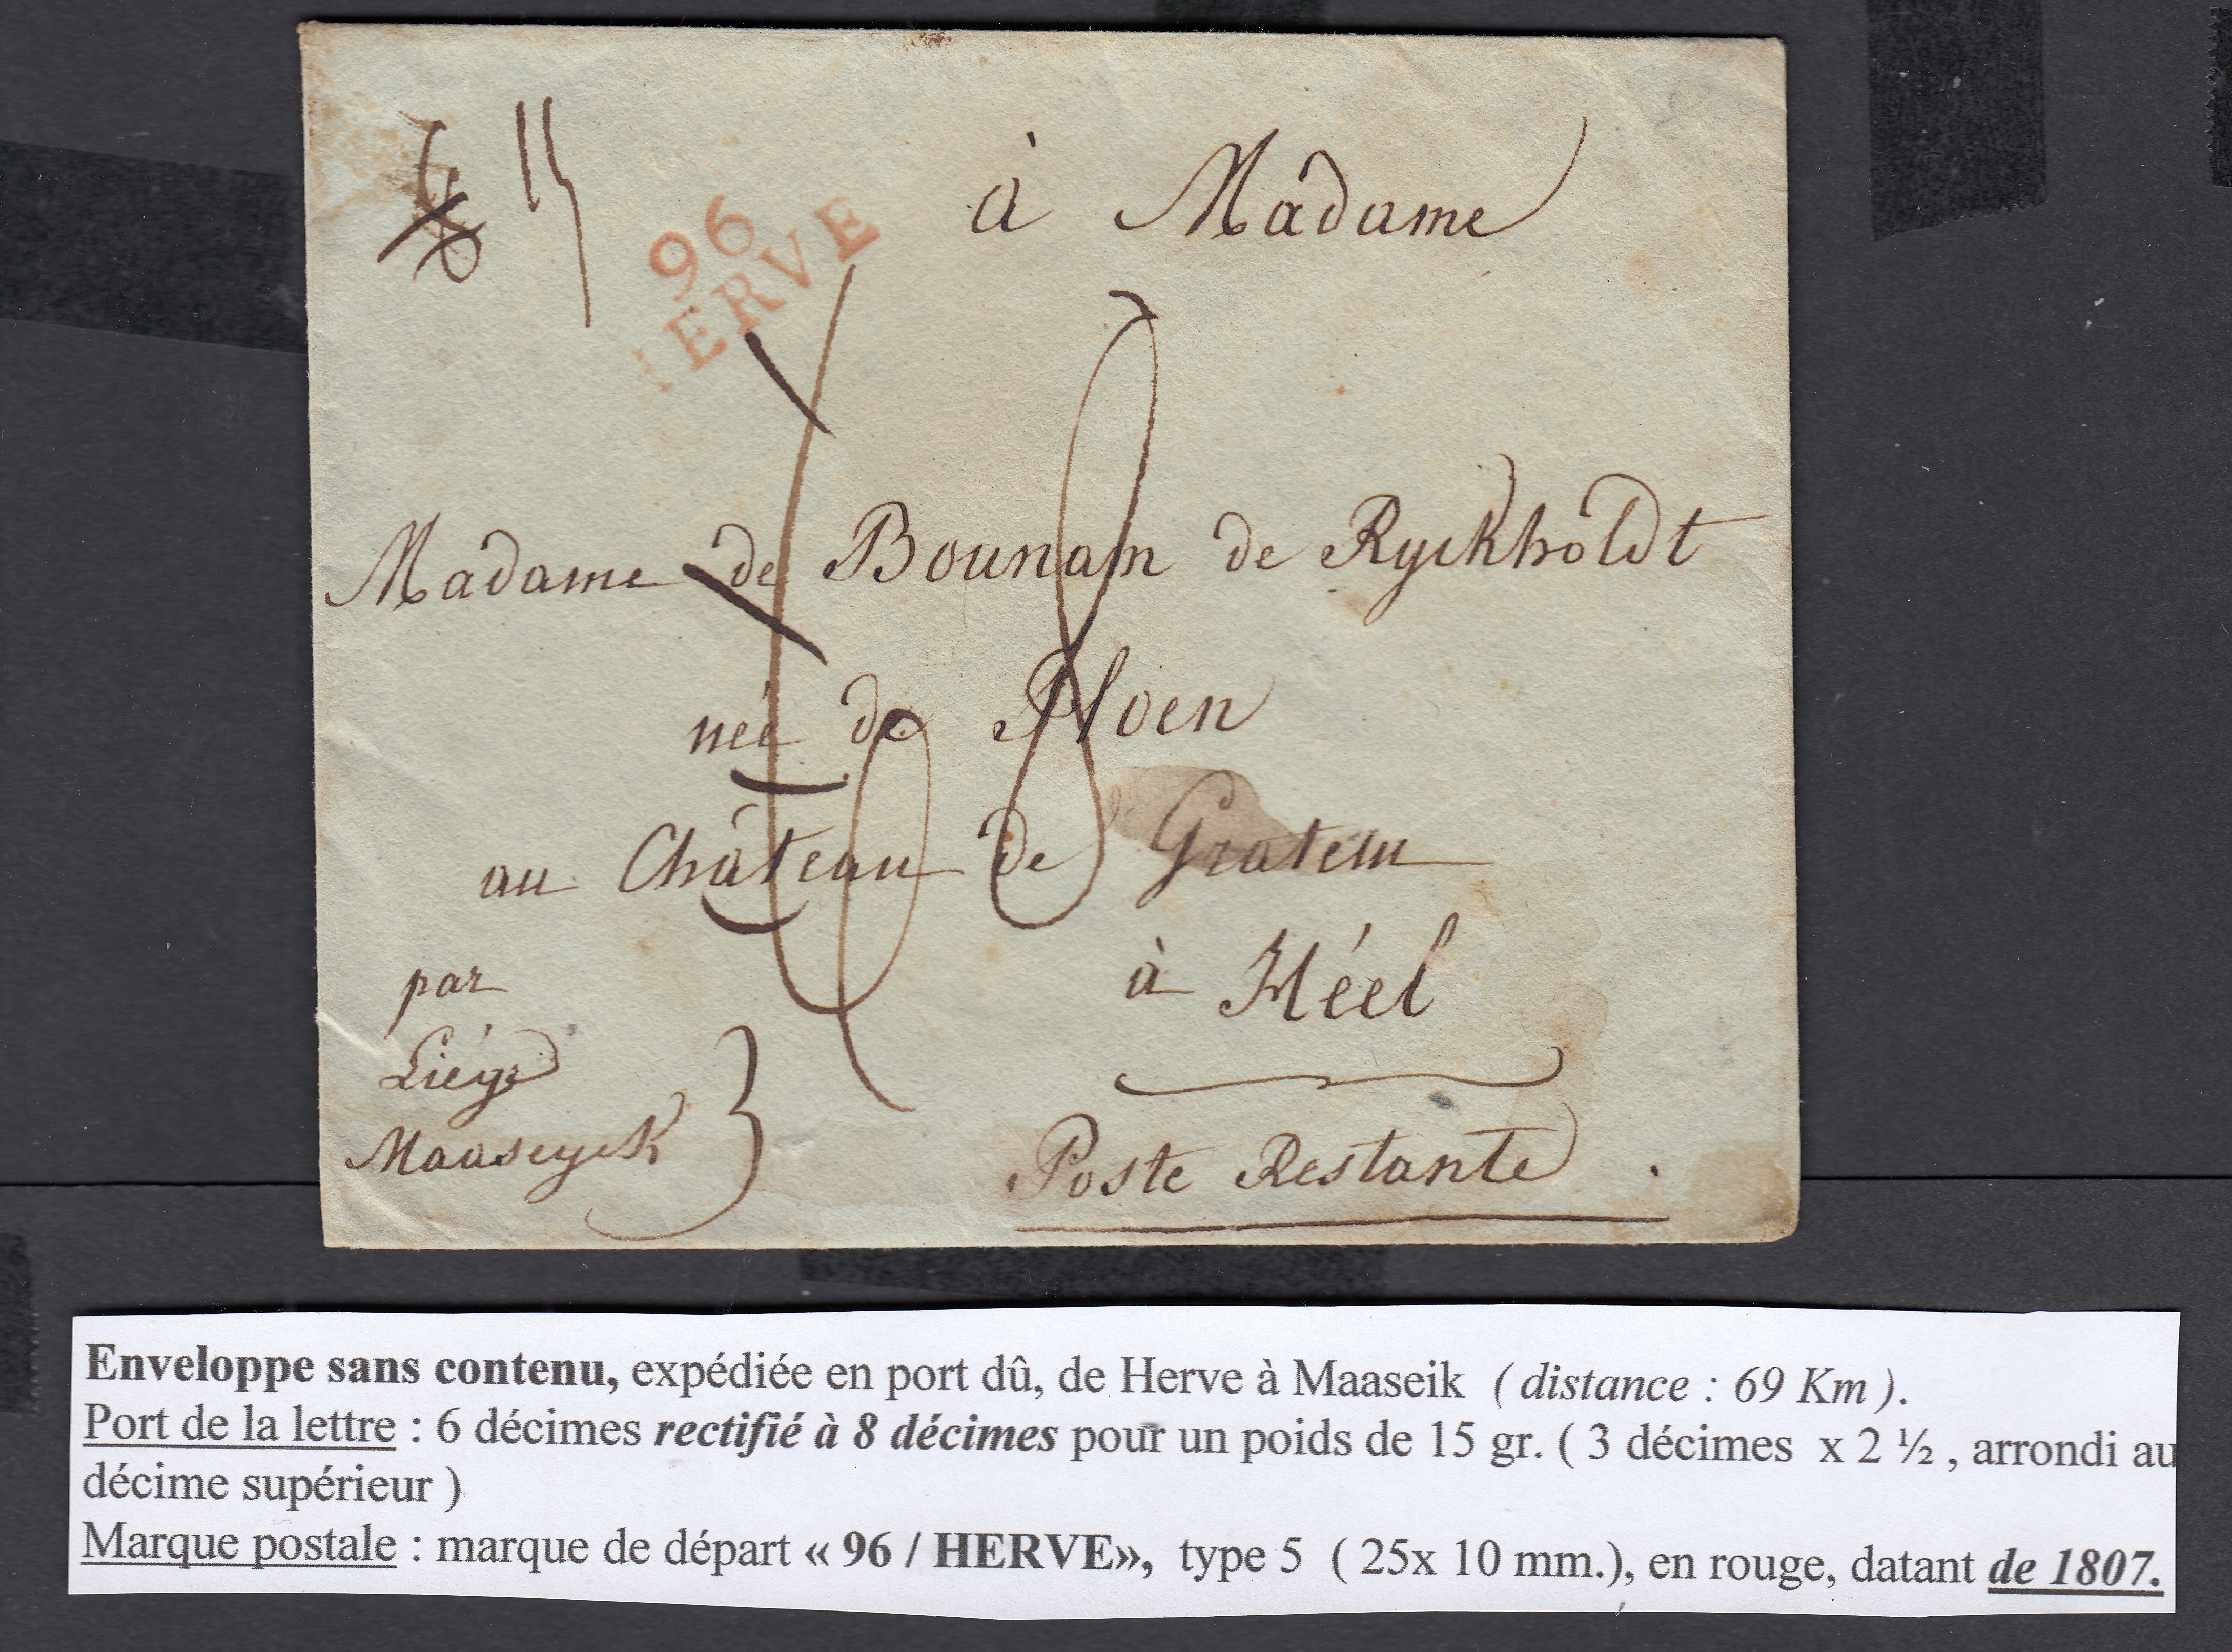 15
96
HERVE
à Madame
Madame de Bounam de Ryckholdt
née de Ploen
au Château de Gratem
à Héel
par
Liége
Maaseyck
Poste Restante
6
8
Enveloppe sans contenu, expédiée en port dû, de Herve à Maaseik ( distance : 69 Km ).
Port de la lettre : 6 décimes rectifié à 8 décimes pour un poids de 15 gr. ( 3 décimes x 2 ½ , arrondi au
décime supérieur )
Marque postale : marque de départ « 96 / HERVE», type 5 ( 25x 10 mm.), en rouge, datant de 1807.